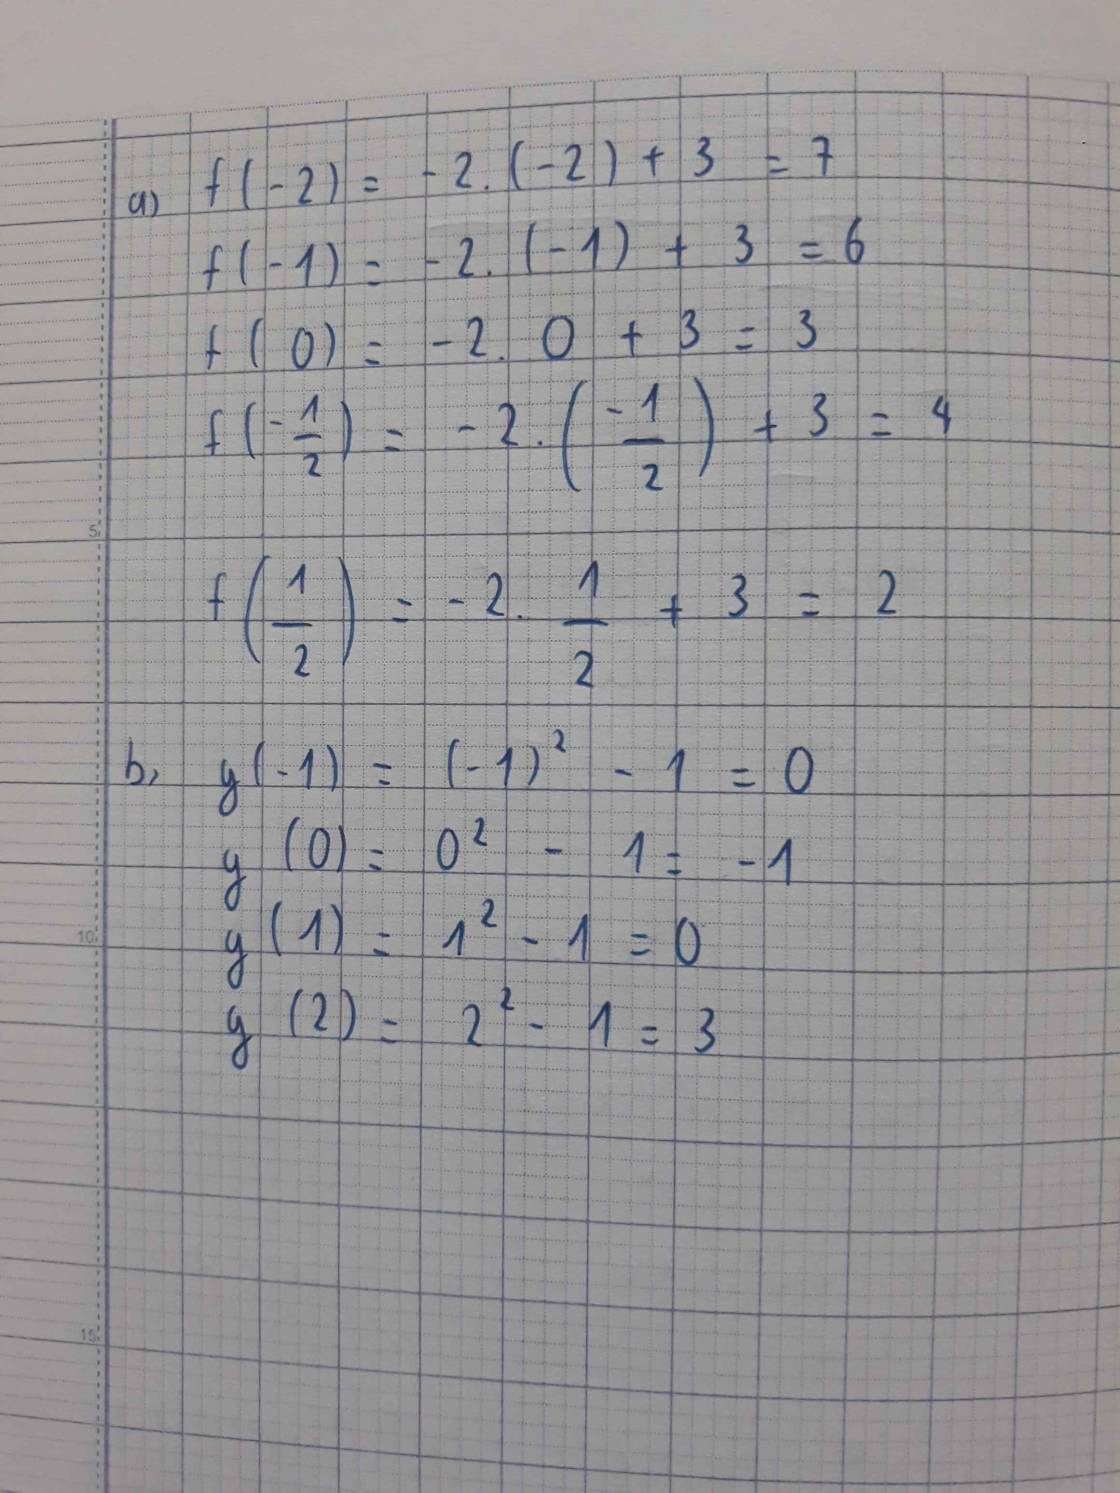 a) f(-2) = -2.(-2) + 3 = 7
f(-1) = -2.(-1) + 3 = 6
f(0) = -2. 0 + 3 = 3
f(-1/2) = -2.(-1/2) + 3 = 4
5
f(1/2) = -2. 1/2 + 3 = 2
b, y(-1) = (-1)² - 1 = 0
y (0) = 0² - 1 = -1
10
y (1) = 1² - 1 = 0
y (2) = 2² - 1 = 3
15